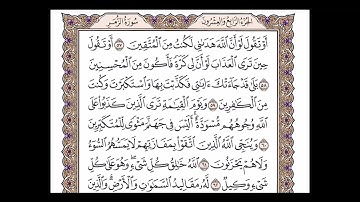 الجزء الرابع والعشرون سورة الزمر
أَوْ تَقُولَ لَوْ أَنَّ ٱللَّهَ هَدَىٰنِى لَكُنتُ مِنَ ٱلْمُتَّقِينَ ٥٧ أَوْ تَقُولَ
حِينَ تَرَى ٱلْعَذَابَ لَوْ أَنَّ لِى كَرَّةً فَأَكُونَ مِنَ ٱلْمُحْسِنِينَ
٥٨ بَلَىٰ قَدْ جَآءَتْكَ ءَايَٰتِى فَكَذَّبْتَ بِهَا وَٱسْتَكْبَرْتَ وَكُنتَ
مِنَ ٱلْكَٰفِرِينَ ٥٩ وَيَوْمَ ٱلْقِيَٰمَةِ تَرَى ٱلَّذِينَ كَذَبُوا۟ عَلَى
ٱللَّهِ وُجُوهُهُم مُّسْوَدَّةٌ أَلَيْسَ فِى جَهَنَّمَ مَثْوًى لِّلْمُتَكَبِّرِينَ
٦٠ وَيُنَجِّى ٱللَّهُ ٱلَّذِينَ ٱتَّقَوْا۟ بِمَفَازَتِهِمْ لَا يَمَسُّهُمُ ٱلسُّوٓءُ
وَلَا هُمْ يَحْزَنُونَ ٦١ ٱللَّهُ خَٰلِقُ كُلِّ شَىْءٍ وَهُوَ عَلَىٰ كُلِّ
شَىْءٍ وَكِيلٌ ٦٢ لَّهُۥ مَقَالِيدُ ٱلسَّمَٰوَٰتِ وَٱلْأَرْضِ وَٱلَّذِينَ